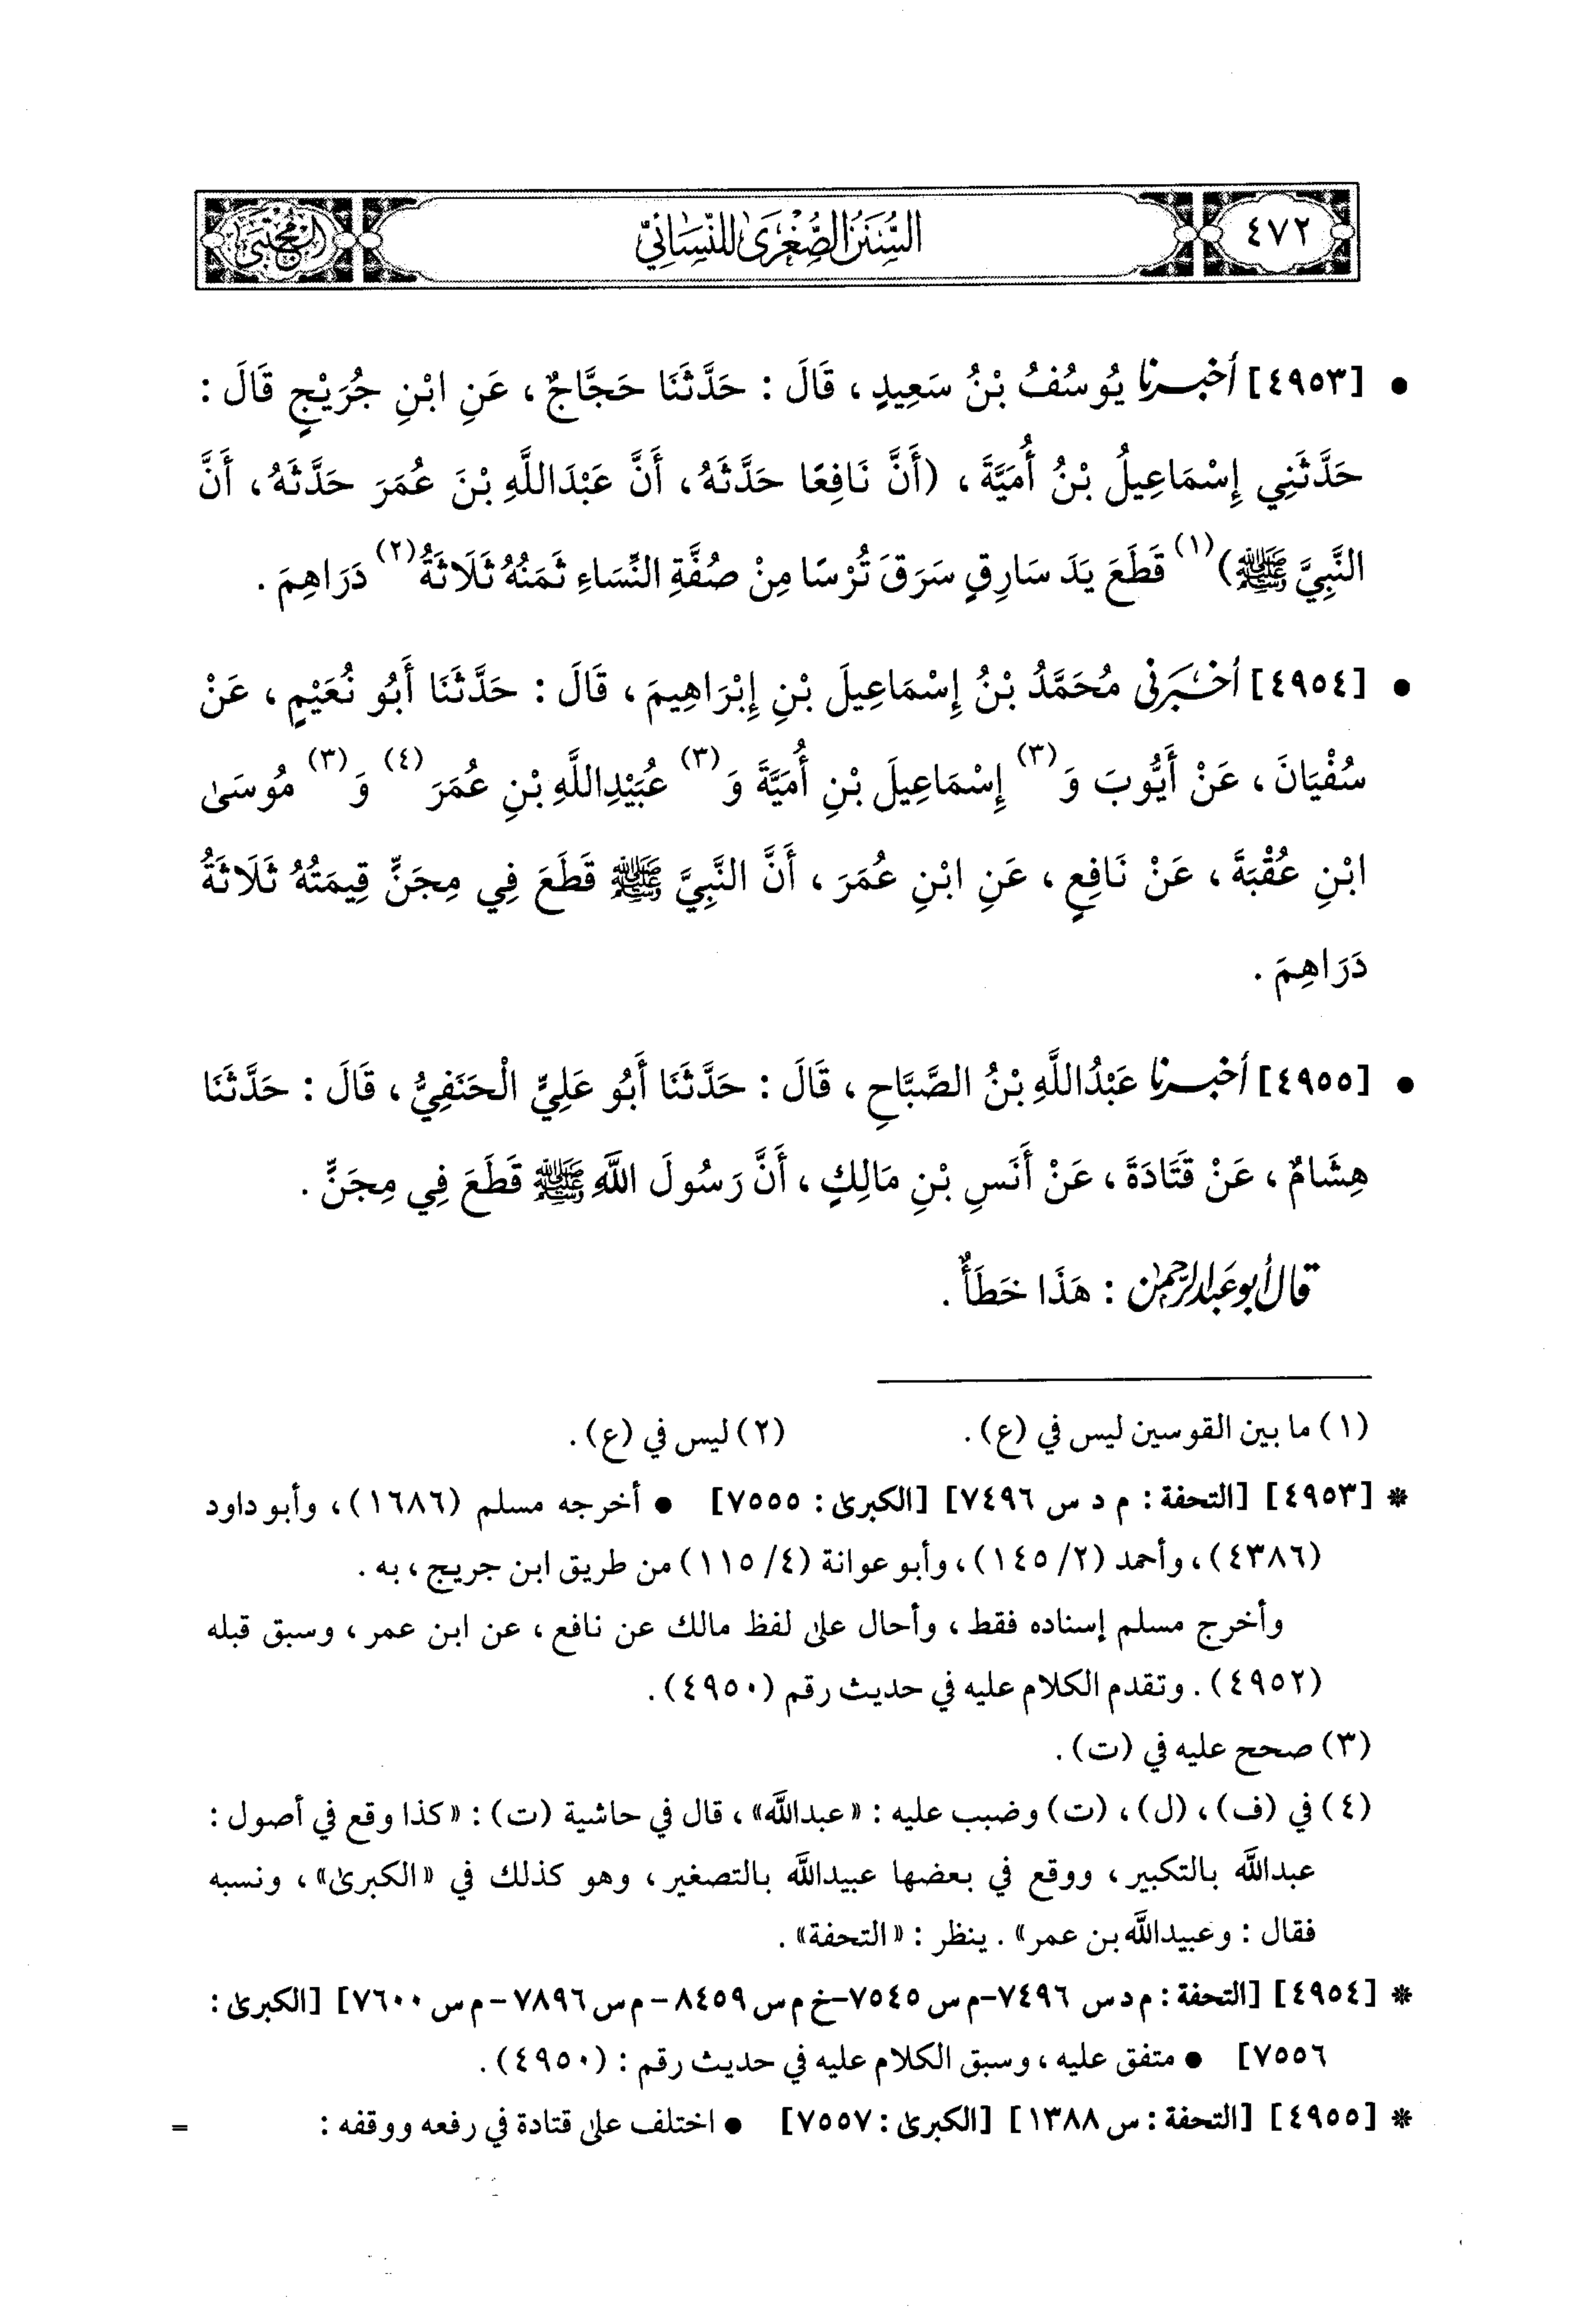 ٤٧٢
السُّنَنُ الصُّغْرَىٰ لِلنَّسَائِيِّ
المجتبى
• [٤٩٥٣] أخبرنا يُوسُفُ بْنُ سَعِيدٍ، قَالَ: حَدَّثَنَا حَجَّاجٌ، عَنِ ابْنِ جُرَيْجٍ قَالَ:
حَدَّثَنِي إِسْمَاعِيلُ بْنُ أُمَيَّةَ، (أَنَّ نَافِعًا حَدَّثَهُ، أَنَّ عَبْدَاللَّهِ بْنَ عُمَرَ حَدَّثَهُ، أَنَّ
النَّبِيَّ ﷺ)(١) قَطَعَ يَدَ سَارِقٍ سَرَقَ تُرْسًا مِنْ صُفَّةِ النِّسَاءِ ثَمَنُهُ ثَلَاثَةُ(٢) دَرَاهِمَ.
• [٤٩٥٤] أَخْبَرَنِي مُحَمَّدُ بْنُ إِسْمَاعِيلَ بْنِ إِبْرَاهِيمَ، قَالَ: حَدَّثَنَا أَبُو نُعَيْمٍ، عَنْ
سُفْيَانَ، عَنْ أَيُّوبَ وَ(٣) إِسْمَاعِيلَ بْنِ أُمَيَّةَ وَ(٣) عُبَيْدِاللَّهِ بْنِ عُمَرَ(٤) وَ(٣) مُوسَىٰ
ابْنِ عُقْبَةَ، عَنْ نَافِعٍ، عَنِ ابْنِ عُمَرَ، أَنَّ النَّبِيَّ ﷺ قَطَعَ فِي مِجَنٍّ قِيمَتُهُ ثَلَاثَةُ
دَرَاهِمَ.
• [٤٩٥٥] أخبرنا عَبْدُاللَّهِ بْنُ الصَّبَّاحِ، قَالَ: حَدَّثَنَا أَبُو عَلِيٍّ الْحَنَفِيُّ، قَالَ: حَدَّثَنَا
هِشَامٌ، عَنْ قَتَادَةَ، عَنْ أَنَسِ بْنِ مَالِكٍ، أَنَّ رَسُولَ اللَّهِ ﷺ قَطَعَ فِي مِجَنٍّ.
قال أبو عَبدالرَّحمٰن: هَذَا خَطَأٌ.
(١) ما بين القوسين ليس في (ع). (٢) ليس في (ع).
* [٤٩٥٣] [التحفة: م د س ٧٤٩٦] [الكبرىٰ: ٧٥٥٥] • أخرجه مسلم (١٦٨٦)، وأبو داود
(٤٣٨٦)، وأحمد (٢/ ١٤٥)، وأبو عوانة (٤/ ١١٥) من طريق ابن جريج، به.
وأخرج مسلم إسناده فقط، وأحال علىٰ لفظ مالك عن نافع، عن ابن عمر، وسبق قبله
(٤٩٥٢). وتقدم الكلام عليه في حديث رقم (٤٩٥٠).
(٣) صحح عليه في (ت).
(٤) في (ف)، (ل)، (ت) وضبب عليه: «عبدالله»، قال في حاشية (ت): «كذا وقع في أصول:
عبدالله بالتكبير، ووقع في بعضها عبيدالله بالتصغير، وهو كذلك في «الكبرىٰ»، ونسبه
فقال: وعبيدالله بن عمر». ينظر: «التحفة».
* [٤٩٥٤] [التحفة: م د س ٧٤٩٦-م س ٧٥٤٥-خ م س ٨٤٥٩-م س ٧٨٩٦-م س ٧٦٠٠] [الكبرىٰ:
٧٥٥٦] • متفق عليه، وسبق الكلام عليه في حديث رقم: (٤٩٥٠).
* [٤٩٥٥] [التحفة: س ١٣٨٨] [الكبرىٰ: ٧٥٥٧] • اختلف علىٰ قتادة في رفعه ووقفه: =